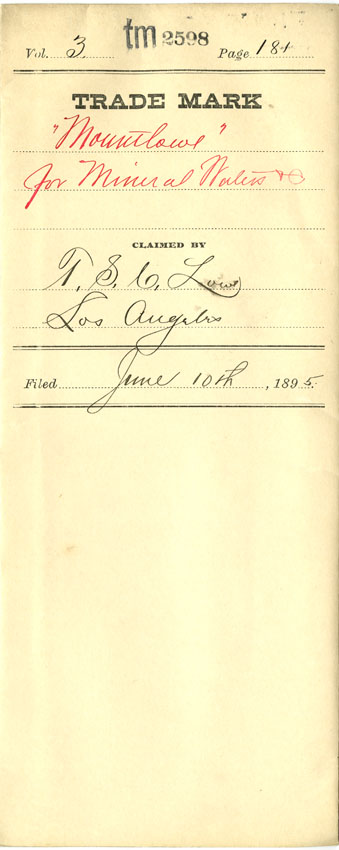 tm 2598
Vol. 3. Page 184
TRADE MARK
"Mountlowe"
for Mineral Waters &c
CLAIMED BY
T. S. C. Lowe
Los Angeles
Filed June 10th, 1895.